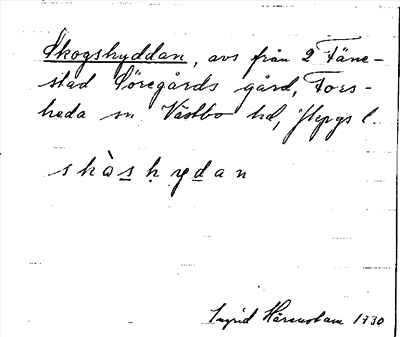 Skogshyddan, avs från 2 Täne-
stad Söregårds gård, Fors-
heda sn Västbo hd, Jkpgs l.
skàs hydan
Ingrid Härenstam 1930